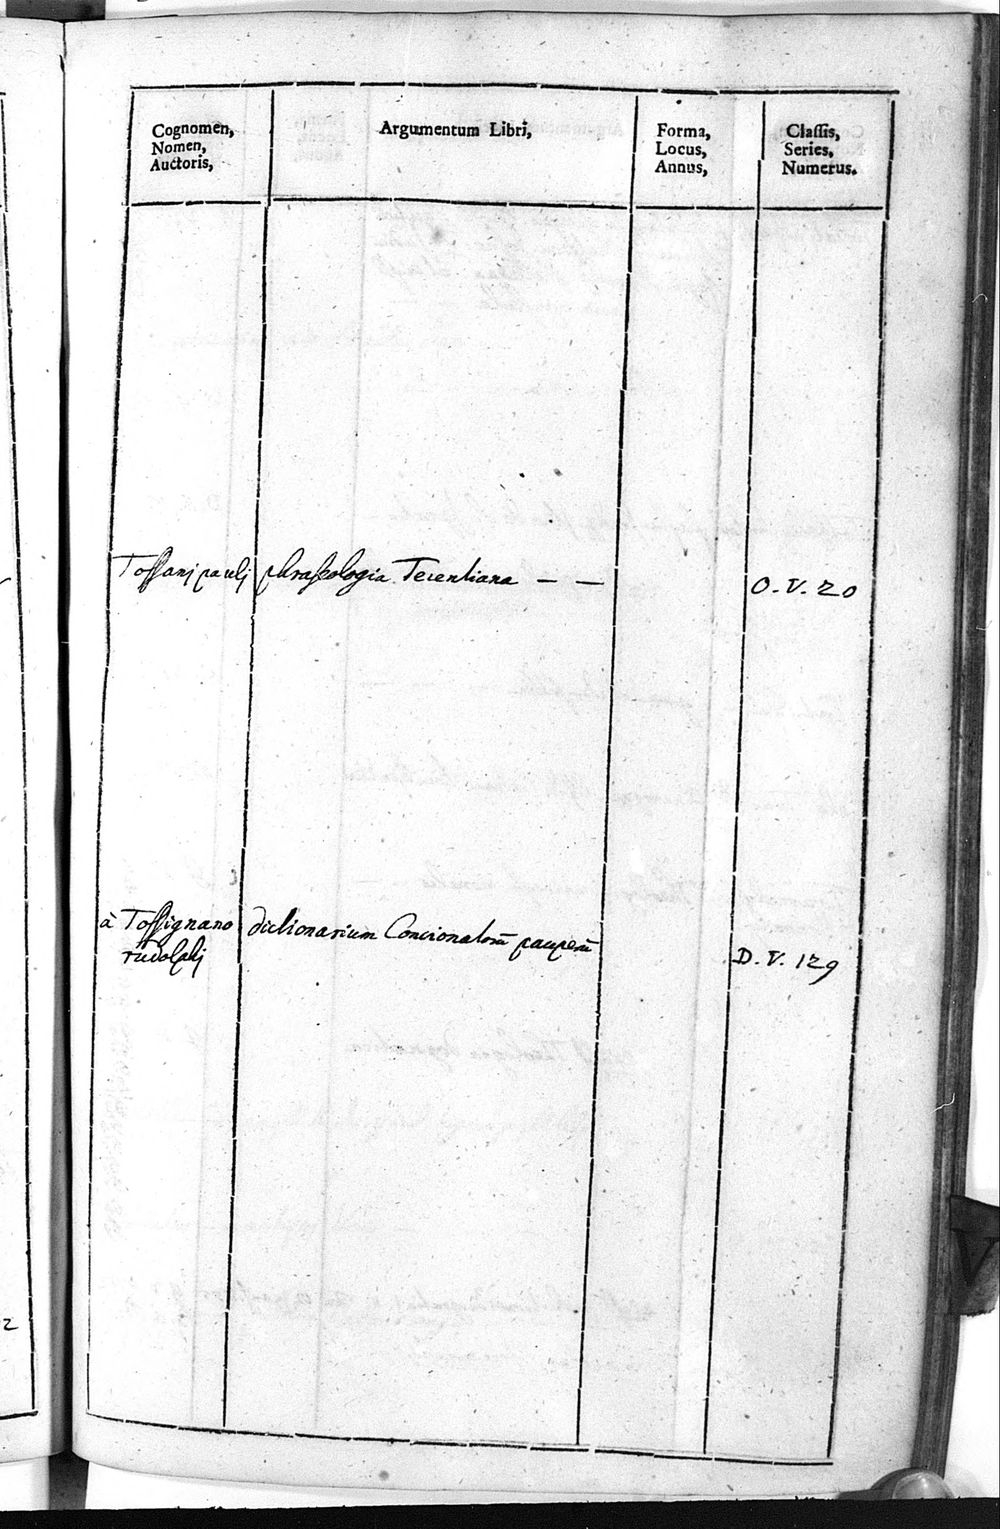 Cognomen,
Nomen,
Auctoris,
Argumentum Libri,
Forma,
Locus,
Annus,
Classis,
Series,
Numerus.
Tossanj paulj phraseologia Terentiana — — O. V. 20
à Tossignano dictionarium Concionatorū pauperū D. V. 129
rudolphj
2
V